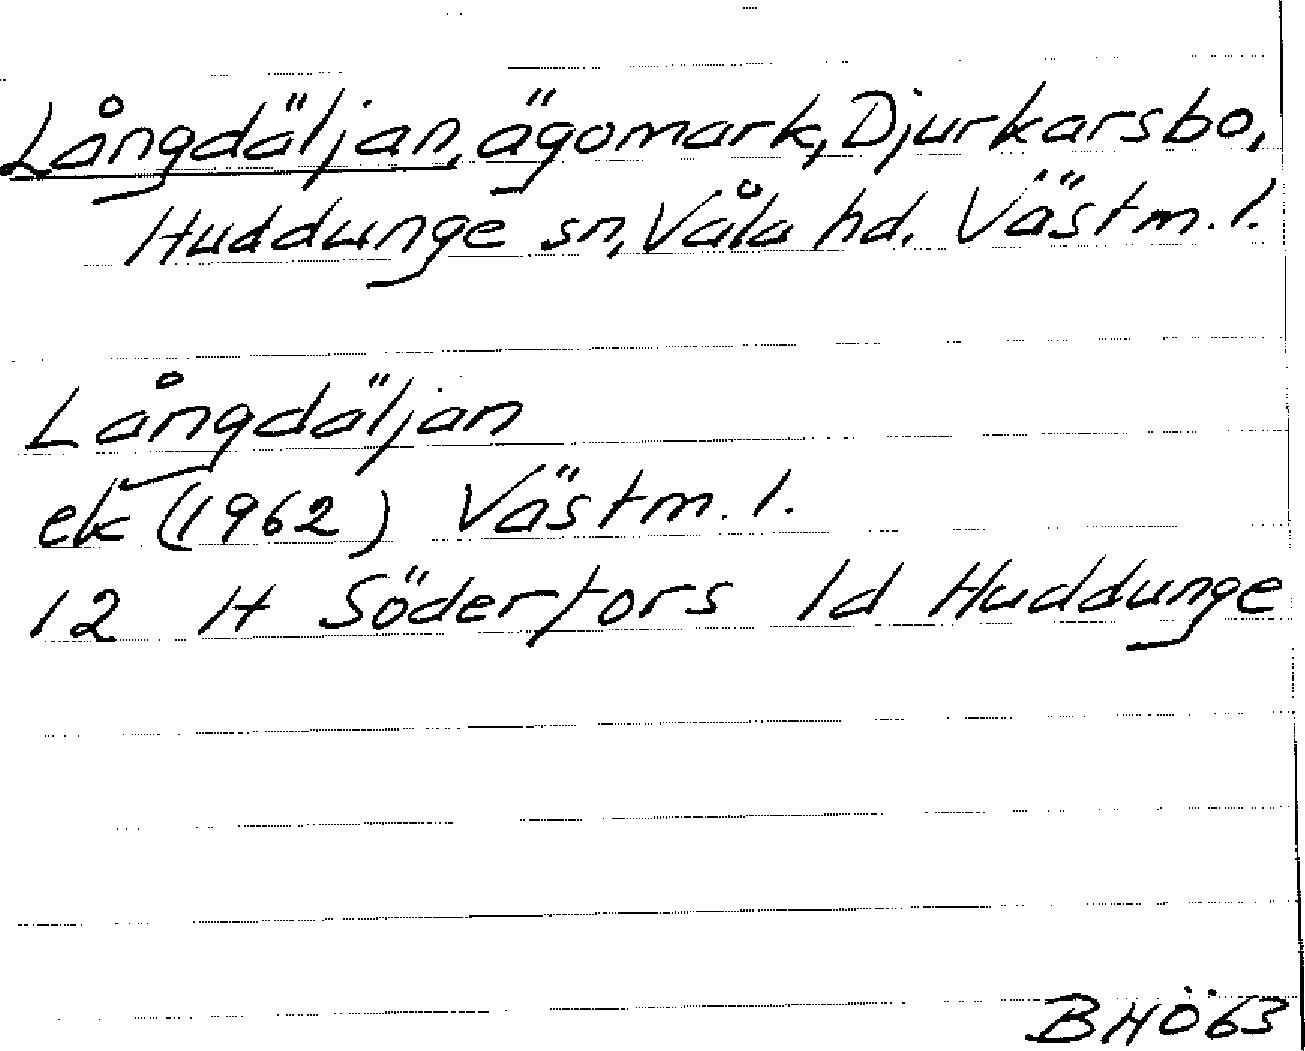 Långdäljan, ägomark, Djurkarsbo,
Huddunge sn, Våla hd. Västm. l.
Långdäljan
ek (1962) Västm. l.
12 H Söderfors 1d Huddunge
BHÖ63